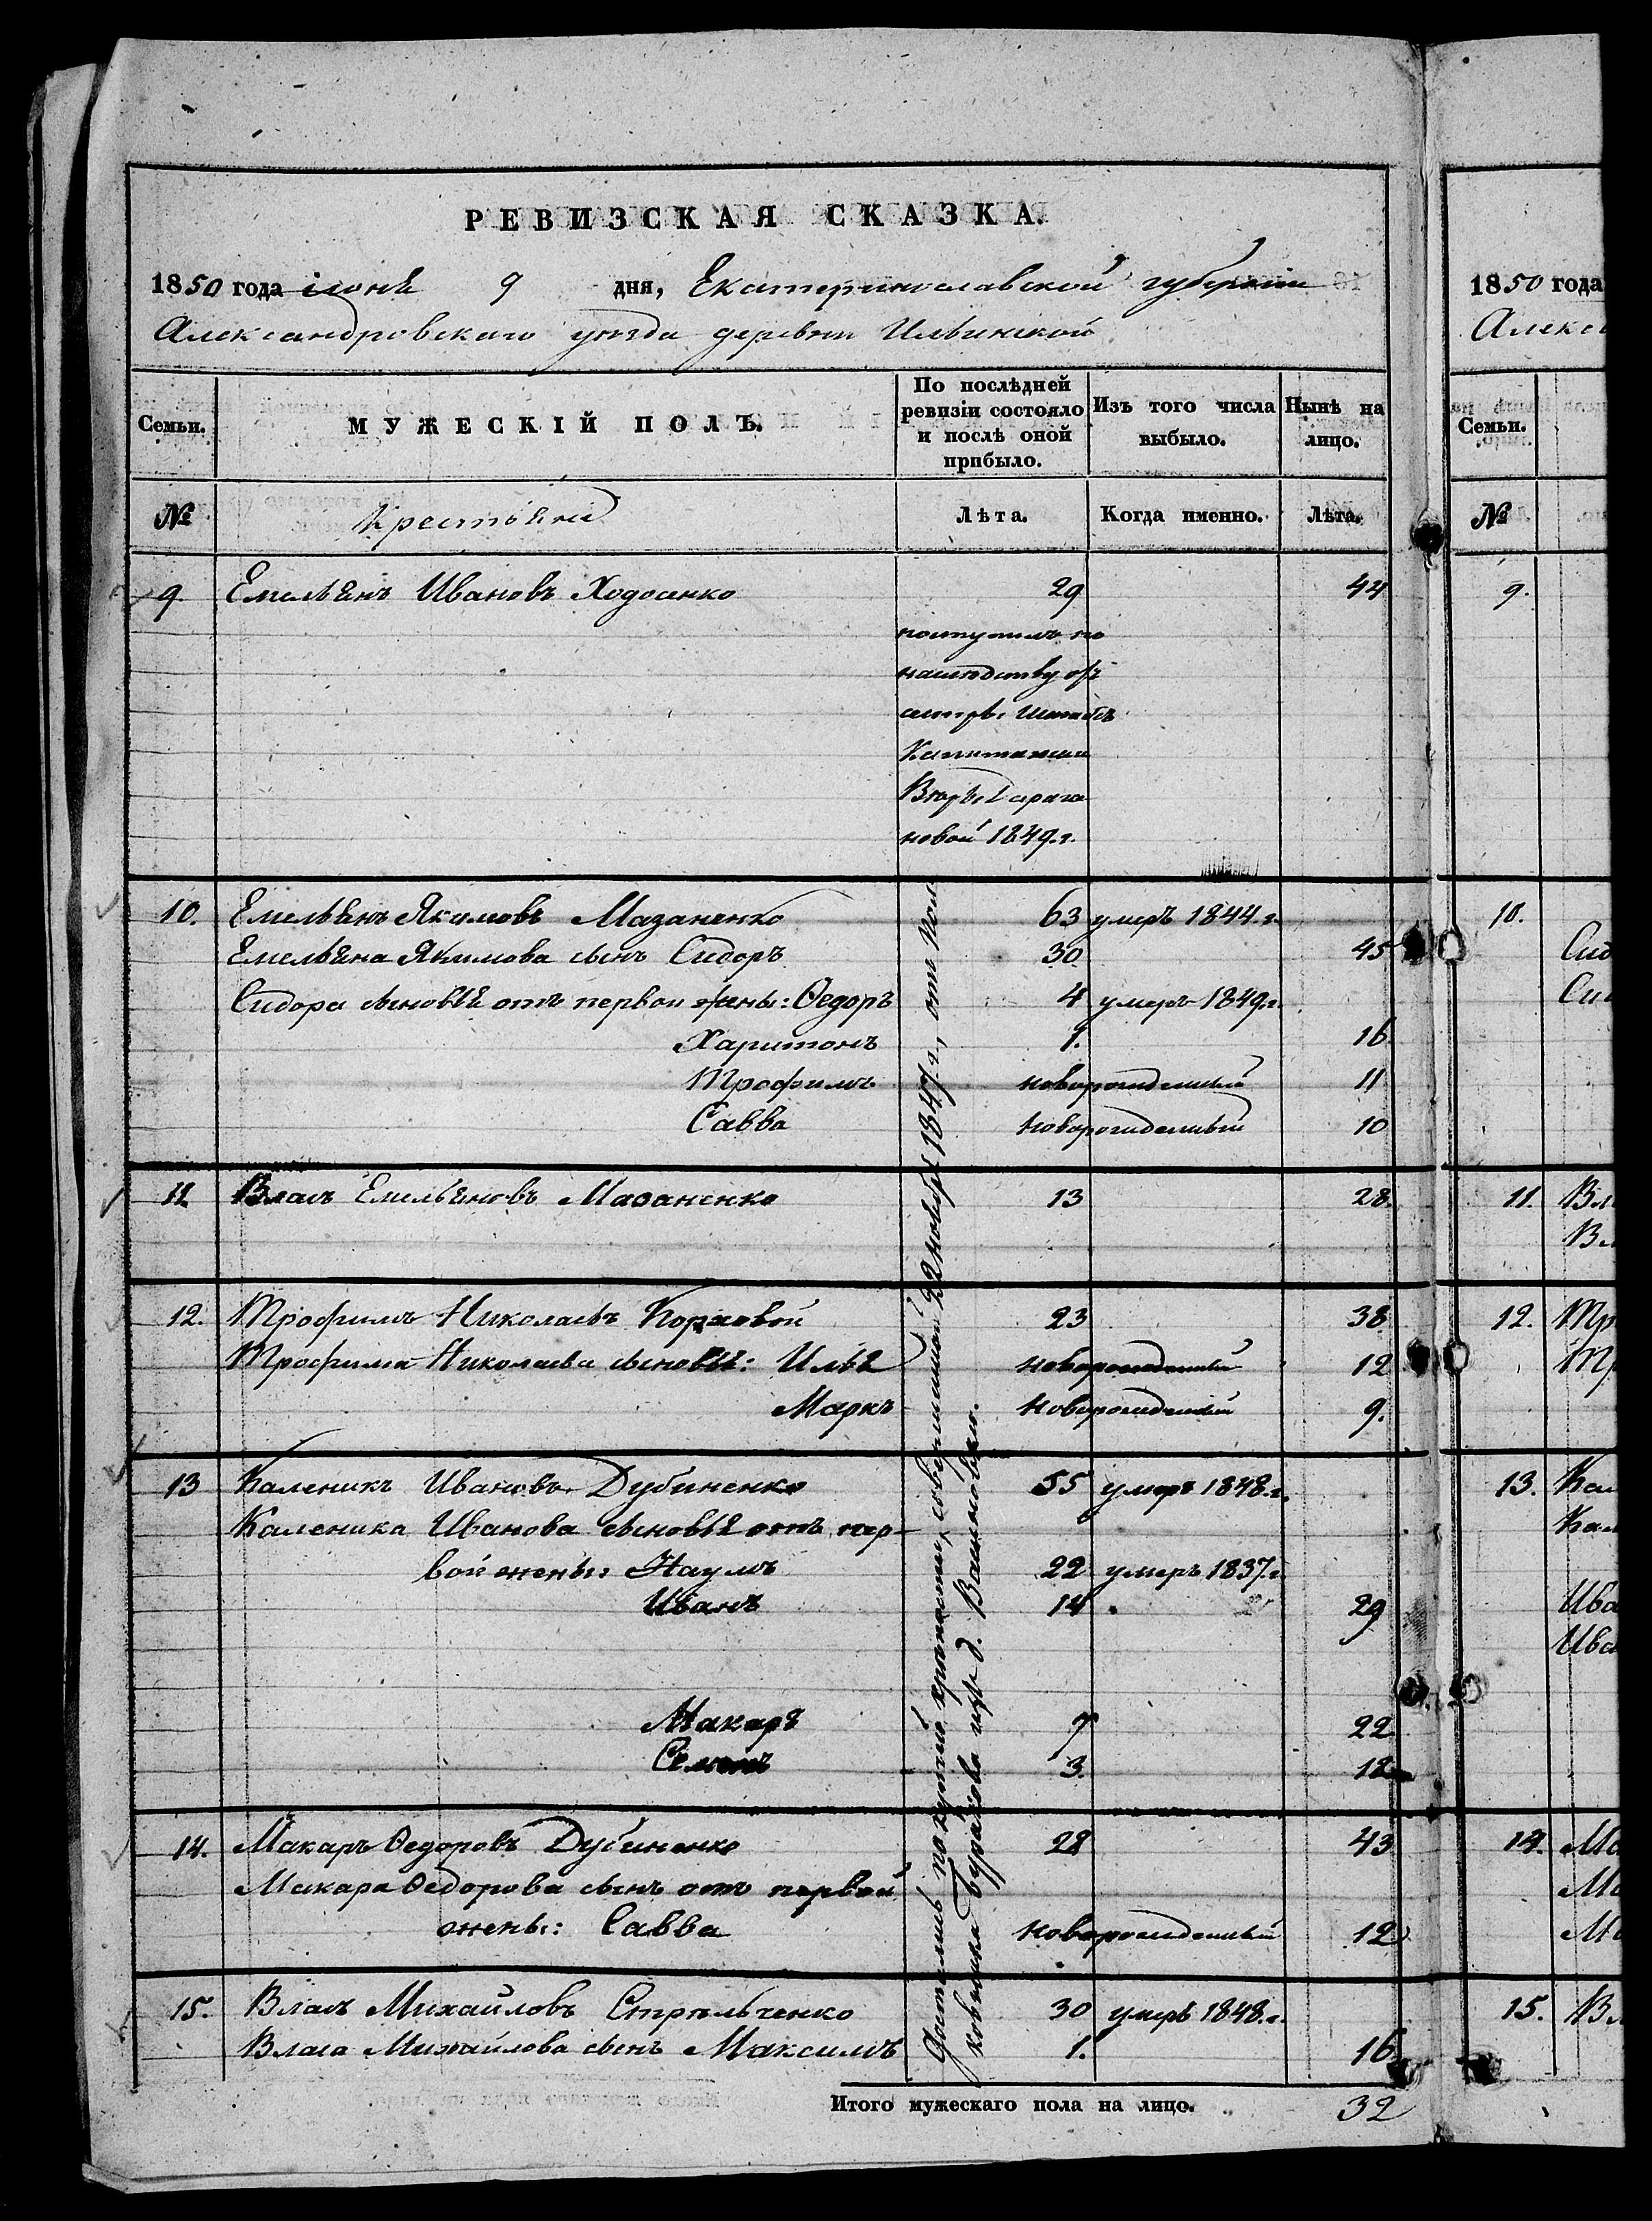 РЕВИЗСКАЯ СКАЗКА.
1850 года іюня 9 дня, Екатеринославской губерніи
Александровскаго уѣзда деревни Ильинской
Семьи. МУЖЕСКІЙ ПОЛЪ. По послѣдней ревизіи состояло и послѣ оной прибыло. Изъ того числа выбыло. Нынѣ на лицо.
№ Крестьяне Лѣта. Когда именно. Лѣта.
9 Емельянъ Ивановъ Ходосенко 29 44
поступилъ по
наслѣдству отъ
сестры Штабсъ
Капитанши
новой 1849.г.
10. Емельянъ Якимовъ Мазаненко 63 умеръ 1844.г.
Емельяна Якимова сынъ Сидоръ 30 45
Сидора сыновья отъ первой жены: Ѳедоръ 4 умеръ 1849.г.
Харитонъ 1. 16
Трофимъ новорожденный 11
Савва новорожденный 10
11 Власъ Емельяновъ Мазаненко 13 28.
12. Трофимъ Николаевъ Коржовой 23 38
Трофима Николаева сыновья: Илья новорожденный 12
Маркъ новорожденный 9.
13 Каленикъ Ивановъ Дубиненко 55 умеръ 1848.г.
Каленика Иванова сыновья отъ пер-
вой жены: Наумъ 22 умеръ 1837.г.
Иванъ 14 29
Макаръ 7 22
Семенъ 3. 18
14. Макаръ Ѳедоровъ Дубиненко 28 43
Макара Ѳедорова сынъ отъ первой
жены: Савва новорожденный 12
15. Власъ Михайловъ Стрельченко 30 умеръ 1848.г.
Власа Михайлова сынъ Максимъ 1. 16
Достались по купчей крѣпости, совершенной 22 ноября 1847.г., отъ Пол
ковника Буракова изъ д. Васильовки.
Итого мужескаго пола на лицо. 32
1850 года
Алекса
Семьи.
№
9.
10.
Сид
Сид
11. Вл
Вл
12. Тр
Тр
13. Кал
Кал
Ива
Ива
14. Ма
Ма
Ма
15. Вл